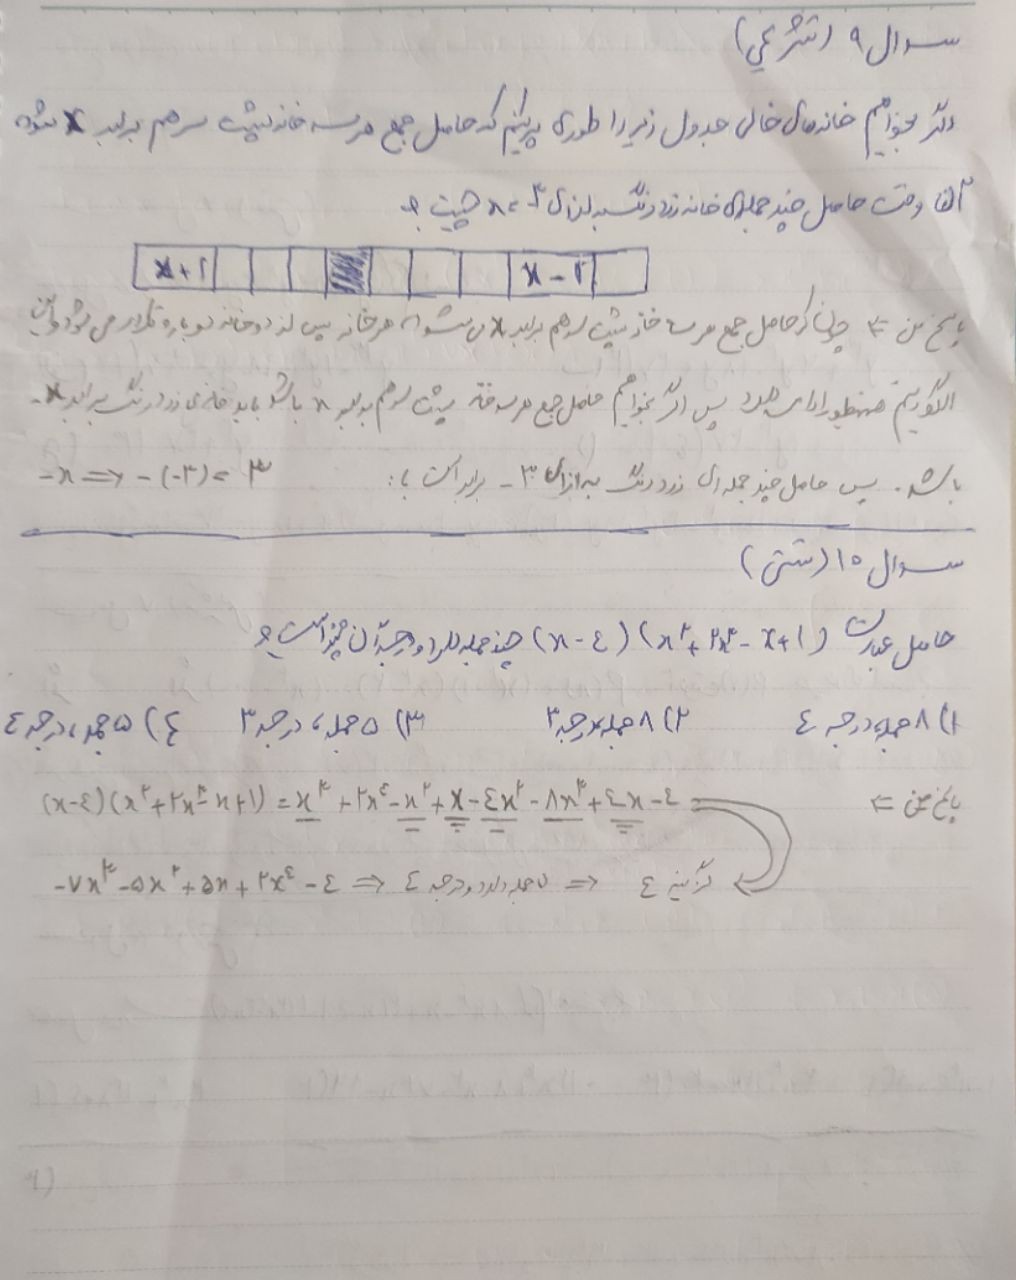 سوال ۹ (تشریحی)
اگر بخواهیم خانه‌های خالی جدول زیر را طوری پر کنیم که حاصل جمع هر سه خانه پشت سر هم برابر x شود،
آن وقت حاصل چند جمله‌ای خانه زرد رنگ به ازای x = -۳ چیست؟
x+۲ x-۲
پاسخ من ⇐ چون که حاصل جمع هر سه خانه پشت سر هم برابر x می‌شود، هر خانه پس از دو خانه دوباره تکرار می‌شود و این
الگو نیز همینطور ادامه دارد پس اگر بخواهیم حاصل جمع هر سه خانه پشت سر هم برابر x باشد باید خانه‌ی زرد رنگ برابر -x
باشد. پس حاصل چند جمله‌ای زرد رنگ به ازای -۳ برابر است با: -x ⇒ -(-۳) = ۳
سوال ۱۰ (تستی)
حاصل عبارت (x-٤)(x²+۲x³-x+۱) چند جمله دارد و درجه آن چند است؟
۱) ۸ جمله، درجه ٤ ۲) ۸ جمله، درجه ۳ ۳) ۵ جمله، درجه ۳ ٤) ۵ جمله، درجه ٤
پاسخ من ⇐ (x-٤)(x²+۲x³-x+۱) = x³+۲x⁴-x²+x-٤x²-۸x³+٤x-٤
-۷x³-۵x²+۵x+۲x⁴-٤ ⇒ ۵ جمله دارد و درجه ٤ ⇒ گزینه ٤